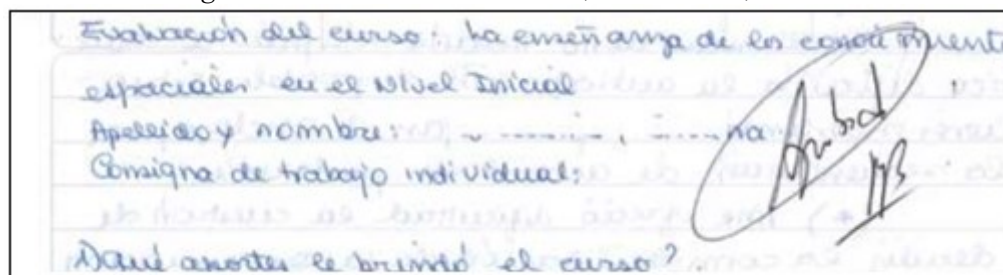 Evaluación del curso: La enseñanza de los conocimiento
espaciales en el Nivel Inicial
Apellido y nombre: na
Consigna de trabajo individual:
1) Qué aportes le brindó el curso?